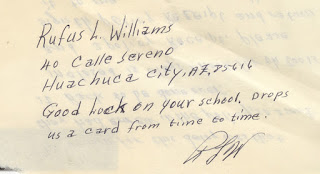 Rufus L. Williams
40 Calle Sereno
Huachuca City, AZ, 85616
Good Luck on your school. Drops
us a card from time to time.
RLW